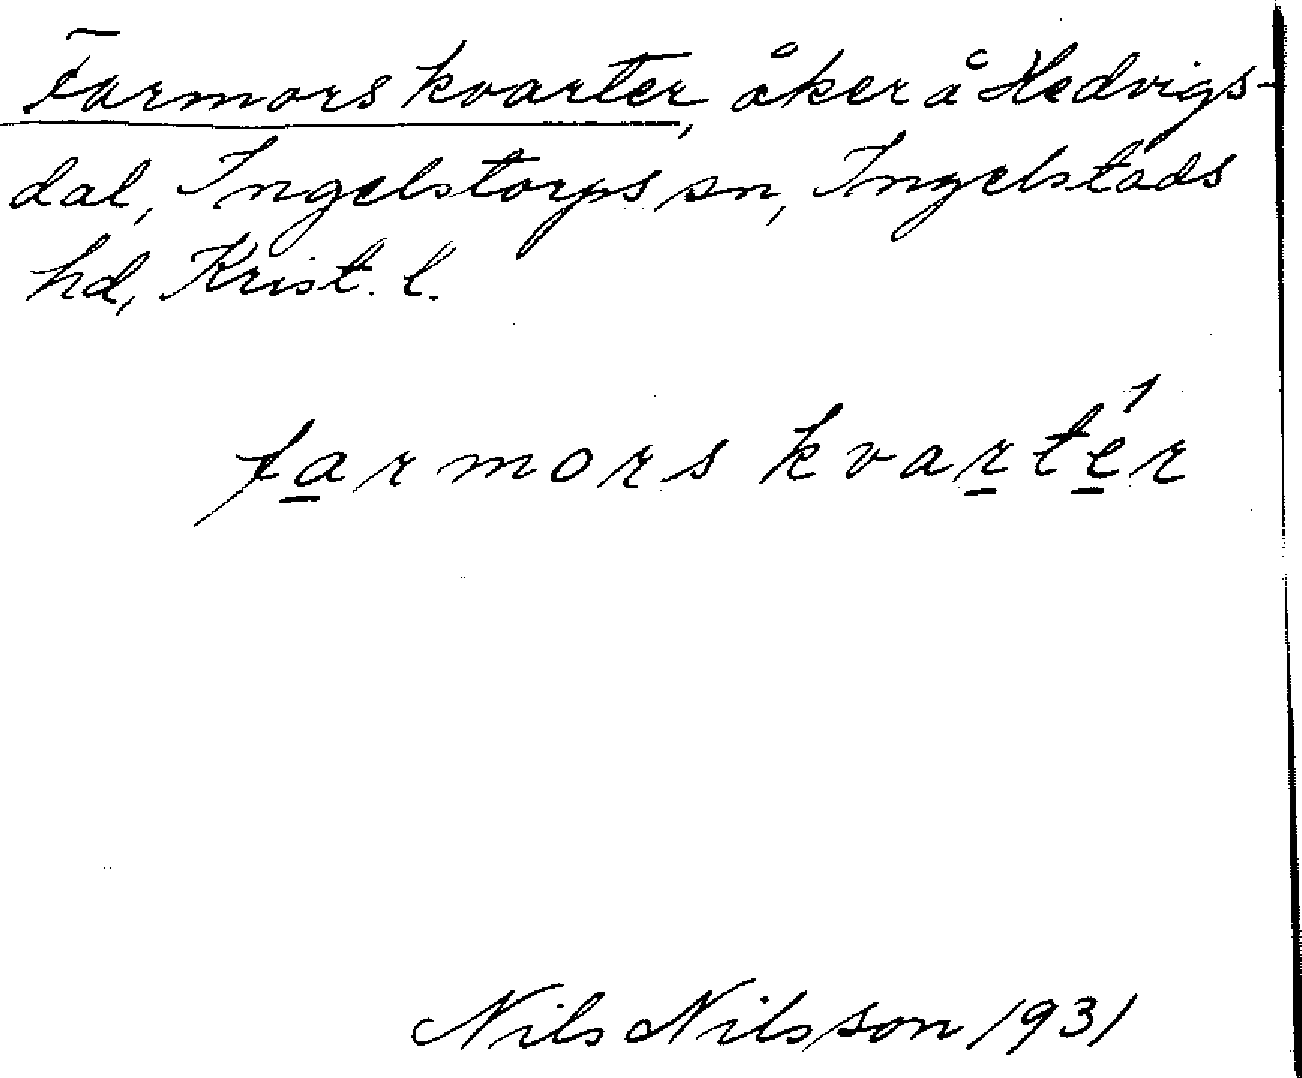 Farmors kvarter, åker å Hedvigs-
dal, Ingelstorps sn, Ingelstads
hd, Krist. l.
farmors kvartér
Nils Nilsson 1931